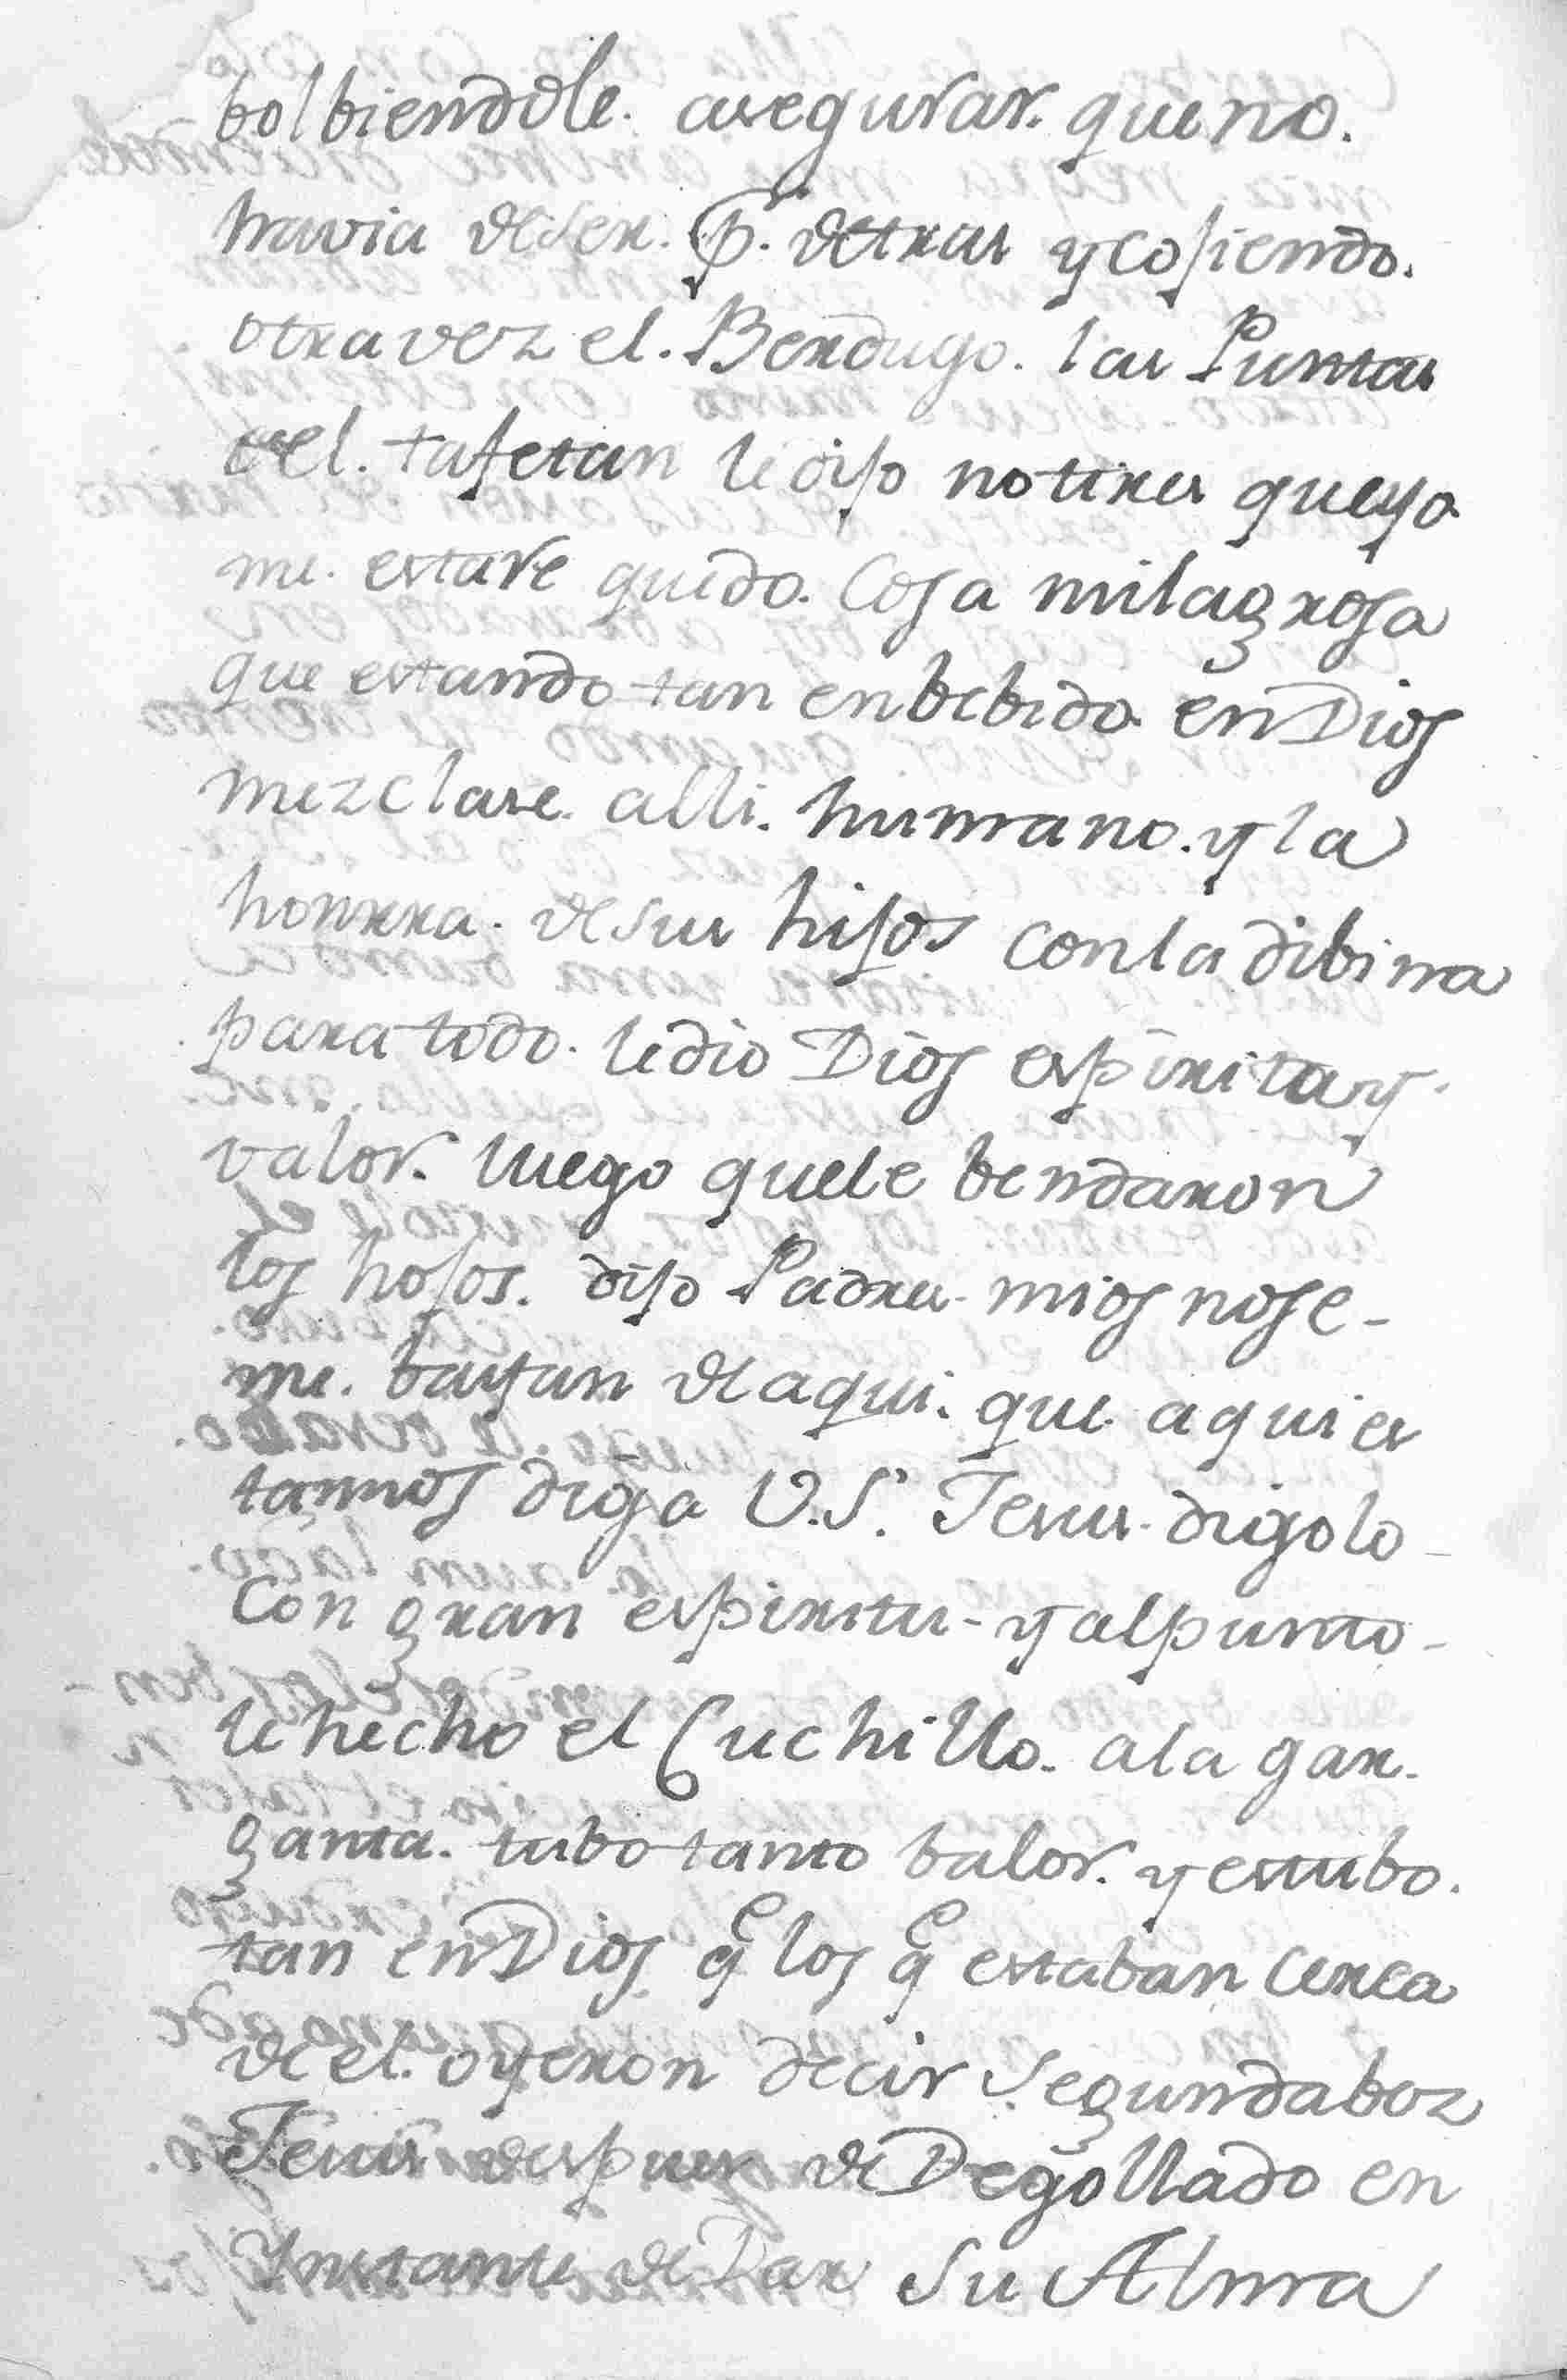 bolbiendole. asegurar. que no.
havia de ser. P. detras y cosiendo.
otra vez el. Berdugo. las Puntas
del. tafetan le dijo no tires que yo
me. estare quedo. Cosa milagrosa
que estando tan enbebido en Dios
mezclase. alli. humano. y la
honrra. de sus hijos con la dibina
para todo. le dio Dios espiritu y.
valor. luego que le bendaron
los hojos. dijo Padres. mios no se-
me. bayan de aqui. que aqui es
tamos diga V.S. Jesus. digolo-
Con gran espiritu- y al punto-
le hecho el Cuchillo. a la gar.
ganta. tubo tanto balor. y estubo.
tan en Dios. q̃ los q̃ estaban cerca
de el. oyeron decir segunda boz
Jesus despues de Degollado en
Ynstante de Dar su Alma